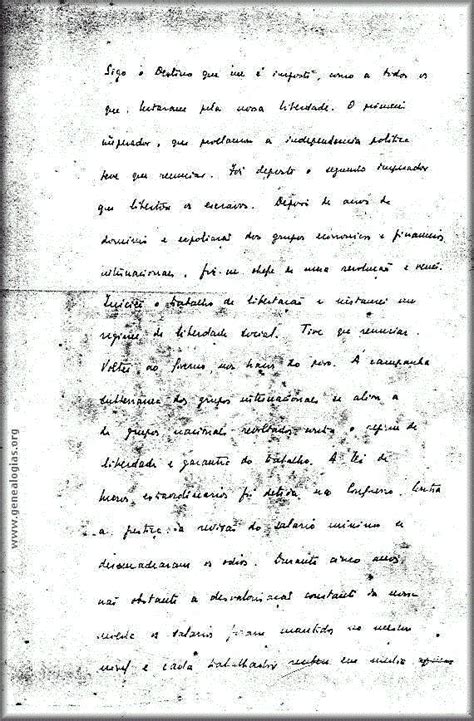 Sigo o Destino que me é imposto, como a todos os
que lutaram pela nossa liberdade. O primeiro
imperador, que proclamou a independencia politica
teve que renunciar. Foi deposto o segundo imperador
que libertou os escravos. Depois de anos de
dominio e espoliação dos grupos economicos e financeiros
internacionais, fiz-me chefe de uma revolução e venci.
Iniciei o trabalho de libertação e instaurei um
regime de liberdade social. Tive que renunciar.
Voltei ao governo nos braços do povo. A campanha
subterranea dos grupos internacionais se aliou a
de grupos nacionais revoltados contra o regime de
liberdade e garantia do trabalho. A lei de
lucros extraordinarios foi detida no Congresso. Contra
a justiça da revisão do salario minimo se
desencadearam os odios. Durante cinco anos,
não obstante a desvalorização constante da nossa
moeda os salarios foram mantidos no mesmo
nivel e cada trabalhador em media
www.genealogias.org